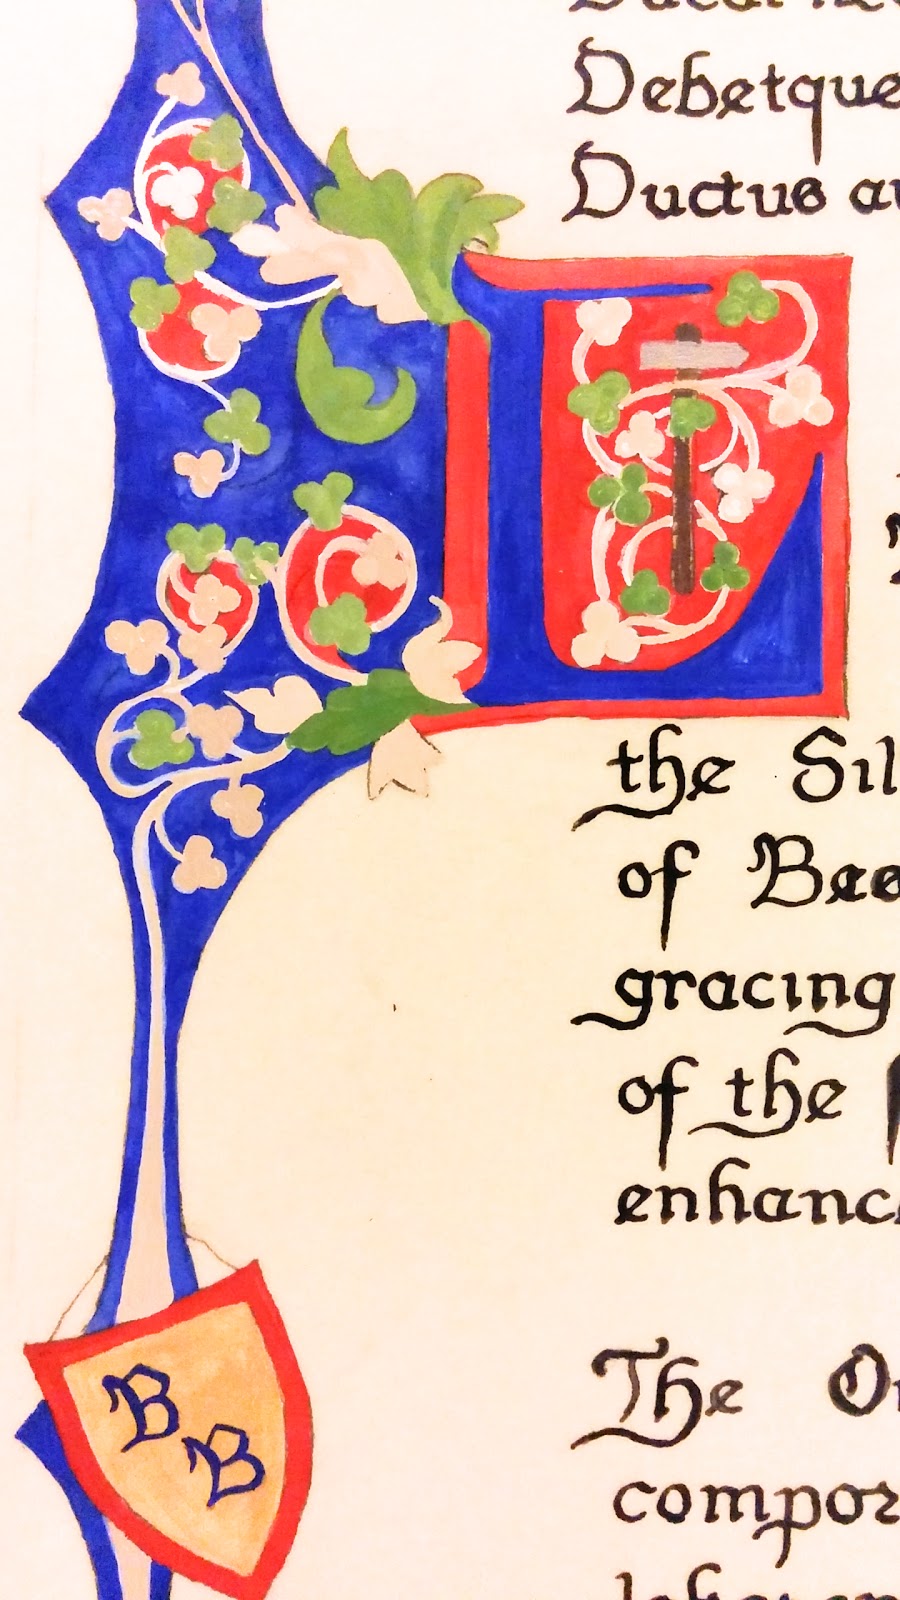 Debetque
Ductus au
L
the Sil
of Bee
gracing
of the
enhanc
The Or
compor
B
B